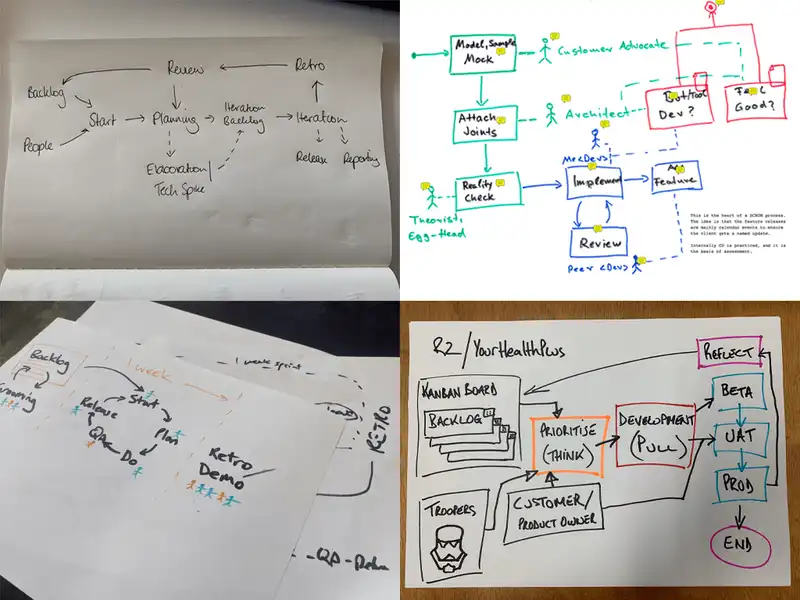 Review
Retro
Backlog
Start
Planning
Iteration
Backlog
Iteration
People
Elaboration/
Tech Spike
Release
Reporting
Model, Sample
Mock
Customer Advocate
Attach
Joints
Architect
Dev?
Good?
Me <Dev>
Reality
Check
Implement
Feature
Theorist,
Egg-Head
Review
Peer <Dev>
This is the heart of a SCRUM process.
The idea is that the feature releases
are mainly calendar events to ensure
the client gets a named update.
Internally CD is practiced, and it is
the basis of assessment.
Backlog
1 week
1 week sprint
Start
Release
Plan
QA
Do
Retro/
Demo
RETRO
QA
R2/YOURHEALTHPLUS
REFLECT
KANBAN BOARD
BACKLOG
PRIORITISE
(THINK)
DEVELOPMENT
(PULL)
BETA
UAT
PROD
TROOPERS
CUSTOMER/
PRODUCT OWNER
END